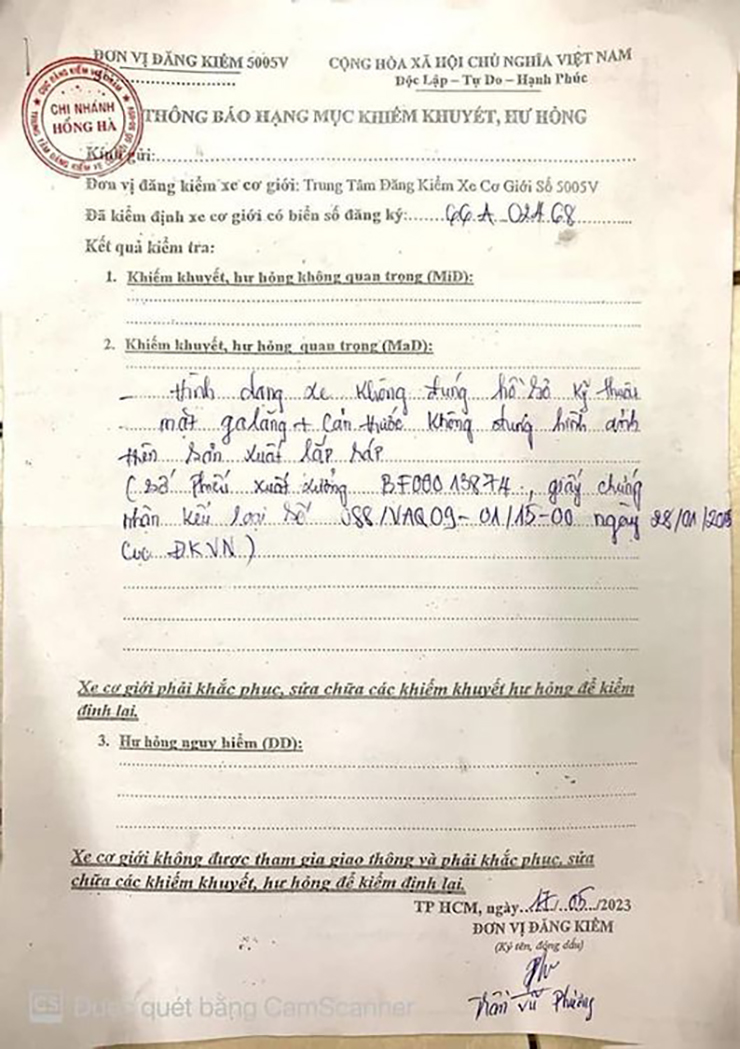 ĐƠN VỊ ĐĂNG KIỂM 5005V
CỘNG HÒA XÃ HỘI CHỦ NGHĨA VIỆT NAM
Độc Lập – Tự Do – Hạnh Phúc
CHI NHÁNH
HỒNG HÀ
THÔNG BÁO HẠNG MỤC KHIẾM KHUYẾT, HƯ HỎNG
Kính gửi:
Đơn vị đăng kiểm xe cơ giới: Trung Tâm Đăng Kiểm Xe Cơ Giới Số 5005V
Đã kiểm định xe cơ giới có biển số đăng ký:
Kết quả kiểm tra:
1. Khiếm khuyết, hư hỏng không quan trọng (MiD):
2. Khiếm khuyết, hư hỏng quan trọng (MaD):
_ hình dạng xe không đúng hồ sơ kỹ thuật
mặt galăng + Cản trước không đúng hình ảnh
trên sản xuất lắp ráp
(Số phiếu xuất xưởng BF00013874, giấy chứng
nhận kiểu loại số 088/VAQ09-01/15-00 ngày 28/01/
Cục ĐKVN)
Xe cơ giới phải khắc phục, sửa chữa các khiếm khuyết hư hỏng để kiểm
định lại.
3. Hư hỏng nguy hiểm (DD):
Xe cơ giới không được tham gia giao thông và phải khắc phục, sửa
chữa các khiếm khuyết, hư hỏng để kiểm định lại.
TP HCM, ngày 17/05/2023
ĐƠN VỊ ĐĂNG KIỂM
(Ký tên, đóng dấu)
Trần Vũ Phương
CS Được quét bằng CamScanner